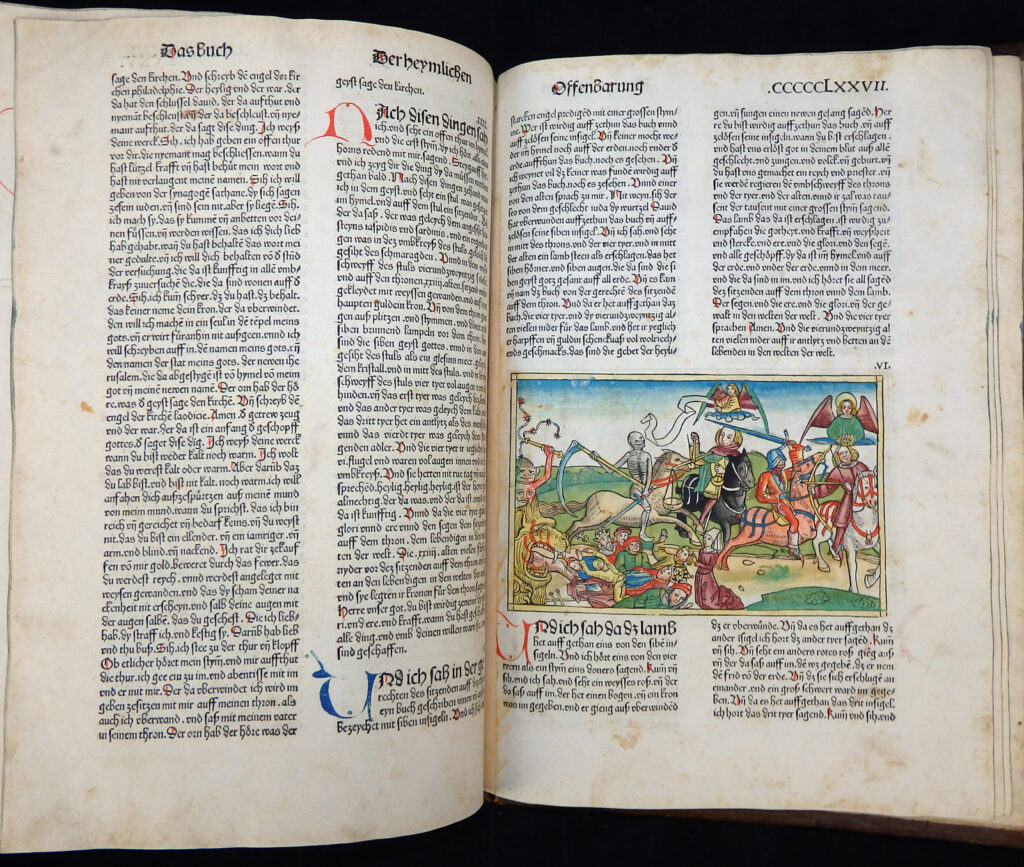 Das Buch
Der heymlichen
sage den kirchen. Vnd schreyb dē engel der kir
chen philadelphie. Der heylig vnd der war. der
da hat den schlussel dauid. der da aufthut vnd
nyemant beschleust. der da beschleust. vn̄ nye-
mant aufthut. der da sagt dise ding. Ich weyß
deine werck. Sih. ich hab geben ein offen thur
vor dir. die nyemant mag beschliessen. wann du
hast lützel krafft vn̄ hast behüt mein wort vnd
hast nit verlaugent meinē namen. Sih ich will
geben von der synagogē sathane. dy sich sagen
zesein iuden. vn̄ sind sein nit. aber sy liegē. Sih.
ich mach sy. das sy kummē vn̄ anbetten vor dei-
nen füssen. vn̄ werden wissen. das ich dich lieb
hab gehabt. wan̄ du hast behalten das wort mei
ner gedulte. vn̄ ich will dich behalten vō d̄ stūd
der versuchung. die da ist kunfftig in alle vmb-
krayß zuuersuchē die. die da sind wonen auff d̄
erde. Sih. ich kum schyer. dz du hast. dz behalt.
das keiner neme dein kron. der da vberwindet.
den will ich machē in ein seul in dē tēpel meins
gots. vn̄ er wirt füranhin nit außgeen. vnnd ich
will schreyben auff in. dē namen meins gots. vn̄
den namen der stat meins gots. der newen ihe
rusalem. die da abestygē ist vō hymel vō meim
got vn̄ meinē newen namē. Der orn hab der hö
re. was d̄ geyst sage den kirchē. Vn̄ schreyb dē
engel der kirchē laodicie. Amen. d̄ getrew zeug
vnd der war. der da ist ein anfang d̄ geschopff
gottes. d̄ saget dise dīg. Ich weyß deine werck
wann du bist weder kalt noch warm. Ich wolt
das du werest kalt oder warm. Aber darūb daz
du lab bist. vnd bist nit kalt. noch warm. ich will
anfahen dich außzespürtzen auß meinē mund
von meim mund. wann du sprichst. das ich bin
reich vn̄ gereichet vn̄ bedarf keins. vn̄ du weyst
nit. das du bist ein ellender. vn̄ ein iamriger. vn̄
arm. vnd blind. vn̄ nackend. Ich rat dir zekauf
fen vō mir gold. beweret durch das fewer. das
du werdest reych. vnnd werdest angeleget mit
weysen gewanden. vnd das dy scham deiner na
ckenheit nit erscheyn. vnd salb deine augen mit
der augen salbe. das du gesehest. Die ich lieb-
hab. dy straff ich. vnd kestig sy. Darūb hab lieb
vnd thu buß. Sih. ich stee zu der thur vn̄ klopff
Ob etlicher höret mein stym̄. vnd mir auffthut
die thur. ich gee ein zu im. vnd abentisse mit im
vnd er mit mir. Der da vberwindet ich wird im
geben zesitzen mit mir auff meinen thron. als
auch ich vberwand. vnd saß mit meinem vater
in seinem thron. Der orn hab der höre was der
geyst sage den kirchen.
IIII.
NAch disen dingen sah
ich. vnd seht ein offen thur im hymel
vnd die erst stym̄. dy ich hort als eins
horns redend mit mir. sagend. Steyg auff her
vnd ich zeyg dir die ding dy da müssen werden
gethan bald. Nach disen dingen zehand was
ich in dem geyst. vnd seht ein stul was gesetzt
im hymel. vnd auff dem stul ein sitzender. vnd
der da saß. der was geleych dem angesicht des
steyns iaspidis vnd sardinis. vnd ein regenbo
gen was in dez vmbkreyß des stuls geleych der
gesiht des schmaragden. Vnnd in dem vmb
schweyff des stuls vierundzweyntzig stule
vnd auff den thronen. xxiiij. alten. sitzend. vmb
gekleydet mit weyssen gewanden. vnd auf iren
haupten guldein kron. Vn̄ von den thron gien
gen auß plitzen. vnd stymmen. vnd doner. vnd
siben brinnend lampeln vor dem thron. das
sind die siben geyst gottes. vnnd in dem an
gesiht des stuls als ein glesins meer. geleych
dem kristall. vnd in mitt des stuls. vnd in dem vmb
schweyff des stuls vier tyer vol augen vorn vn̄
hinden. vn̄ das erst tyer was geleych dem lewen
vnd das ander tyer was geleych dem kalb. vnd
das dritt tyer het ein antlytz als des menschē
vnnd das vierdt tyer was geleych dem flie
genden adler. Vnd die vier tyer ir iegliches het
vi. flugel vnd waren vol augen innen vnd im
vmbkreyß. Vnd sy hetten nit rue tag vn̄ nacht
sprechēd. heylig. heylig. heylig. ist der herr got
almechtig. der da was. vnd der da ist. vnd der
da ist kunfftig. Vnnd da die vier tyer gaben
glori vnnd ere vnnd den segen dem sitzenden
auff dem thron. dem lebendigen in den wel
ten der welt. Die. xxiiij. alten vielen fur sich
nyder vor dez sitzenden auff dem thron. vn̄ bet
ten an den lebendigen in den welten der welt.
vnd sye legten ir kronen für den thron. sagend
Herre vnser got. du bist wirdig zenemen die glo
ri. vnd ere. vnd krafft. wann du hast geschaffen
alle ding. vnd vmb deinen willen warn sy. vnd
sind geschaffen.
VNd ich sah in der ge
rechten des sitzenden auff dem thron
eyn buch geschriben innen vn̄ aussen
bezeychet mit siben insigeln. Vnd ich sah
Offenbarung
.CCCCCLXXVII.
starcken engel predigēd mit einer grossen stym̄
me. Wer ist wirdig auff zethun das buch vnnd
zelösen seine insigel. Vn̄ keiner mocht we-
der im hymel noch auff der erden. noch vnder d̄
erde. auffthun das buch. noch es gesehen. Vn̄
ich weynet vil dz keiner was funde wirdig auff
zethun das buch. noch es zesehen. Vnnd einer
von den alten sprach zu mir. Nit weyn. sih der
leo von dem geschlecht iuda dy wurtzel Dauid
hat vberwunden auffzethun das buch vn̄ auff-
zelösen seine siben insigel. Vn̄ ich sah. vnd seht
in mitt des throns. vnd der vier tyer. vnd in mitt
der alten ein lamb steen als erschlagen. das het
siben hörner. vnd siben augen. die da sind die si
ben geyst gotz gesant auff all erde. Vn̄ es kun
vn̄ nam dz buch von der gerechtē des sitzenden
auff dem thron. Vnd da er het auffgethan daz
buch. die vier tyer. vnd dy vierundzweyntzig al
ten vielen nider für das lamb. vnd het ir yeglich
er harpffen vn̄ guldin schenckvaß vol wolriech-
ends geschmacks. das sind die gebet der heyli-
gen. vn̄ sungen einen newen gesang sagēd. Her
re du bist wirdig auffzethun das buch. vn̄ auff
zelösen seine insigeln. wann du bist erschlagen.
vnd hast vns erlöst got in deinem blut auß alle
geschlecht. vnd zungen. vnd volck. vn̄ geburt. vn̄
du hast vns gemachet ein reych vnd priester. vn̄
sie werdē regieren dē vmbschweyff des throns
vnd der tyer. vnd der alten. vnnd ir zal was tau-
sent der tausent mit einer grossen stym̄ sagend.
Das lamb das da ist erschlagen ist wirdig zu-
empfahen die gotheyt. vnd krafft. vn̄ weyßheit
vnd stercke. vnd ere. vnd die glori. vnd den segē.
vnd alle geschöpff. dy da ist im hymel. vnd auff
der erde. vnd vnder der erde. vnnd in dem meer.
vnd die da sind in im. vnd ich höret sie all sagēd
dez sitzenden auff dem thron vnnd dem lamb.
Der segen. vnd die ere. vnd die glori. vn̄ der ge-
walt in den welten der welt. Vnd die vier tyer
sprachen Amen. Vnd die vierundzweyntzig al
ten vielen nider auff ir antlytz vnd betten an dē
lebenden in den welten der welt.
.VI.
VNd ich sah da dz lamb
het auff gethan eins von den sibē in-
sigeln. Vnd ich hört eins von den vier
tyern als ein stym̄ eins doners sagend. Kum̄ vn̄
sih. vnd ich sah. vnd seht ein weysses roß. vn̄ der
da saß auff im. der het einen bogen. vn̄ ein kron
was im gegeben. vnd er gieng auß vberwindēd
dz er vberwünde. Vn̄ da es het auffgethan dz
ander isigel. ich hort dz ander tyer sagēd. Kum̄
vn̄ sih. Vn̄ seht ein anders rotes roß gieng auß
vn̄ der da saß auff im. dē wz gegebē. dz er nem
dē frid vō der erde. Vn̄ dz sie sich erschlüge an
einander. vnd ein groß schwert ward im gege-
ben. Vn̄ da es het auffgethan das drit insigel.
ich hort das drit tyer sagend. Kum̄ vnd sih. vnd